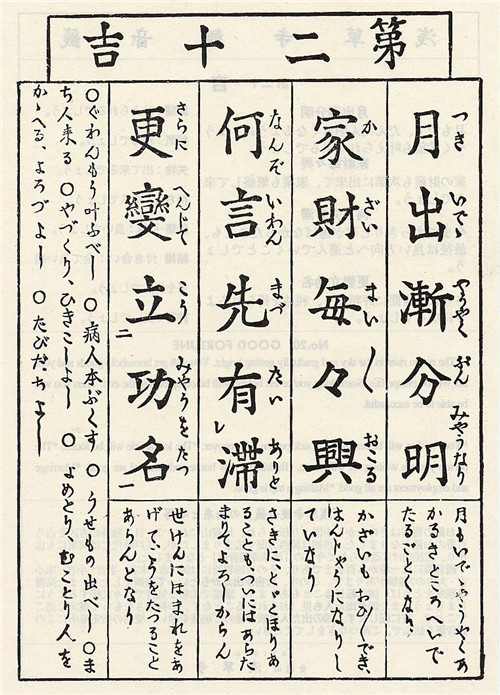 第二十吉
月出漸分明
つき いでゝ やうやく ぶん みやうなり
家財毎々興
か ざい まい〳〵 おこる
何言先有滞
なんぞ いわん まづ たい ありと
レ
更變立功名
さらに へんじて こう みやうをたつ
二 一
月もいでゝやうやくあ
かるきところへいで
たるごとくなり、
かざいおひ〳〵でき、
はんじやうになりし
ていなり
さきに、とゞこほりあ
ることもついにはあらた
まりてよろしからん
せけんにほまれをあ
げてこうをたつること
あらんとなり
○ぐわんもう叶ふべし ○病人本ぶくす ○うせもの出べし ○ま
ち人来る ○やづくり、ひきこしよし ○よめとり むことり人を
かゝへる、よろづよし ○たびだちよし